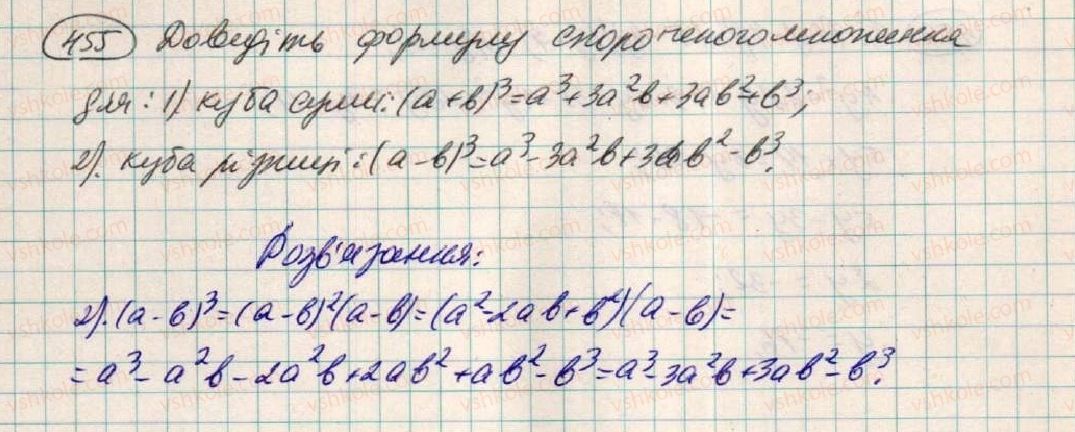 455 Доведіть формулу скороченого множення
для: 1) куба суми: (a+b)³=a³+3a²b+3ab²+b³;
2). куба різниці: (a-b)³=a³-3a²b+3ab²-b³.
Розв'язання:
2). (a-b)³=(a-b)²(a-b)=(a²-2ab+b²)(a-b)=
=a³-a²b-2a²b+2ab²+ab²-b³=a³-3a²b+3ab²-b³.